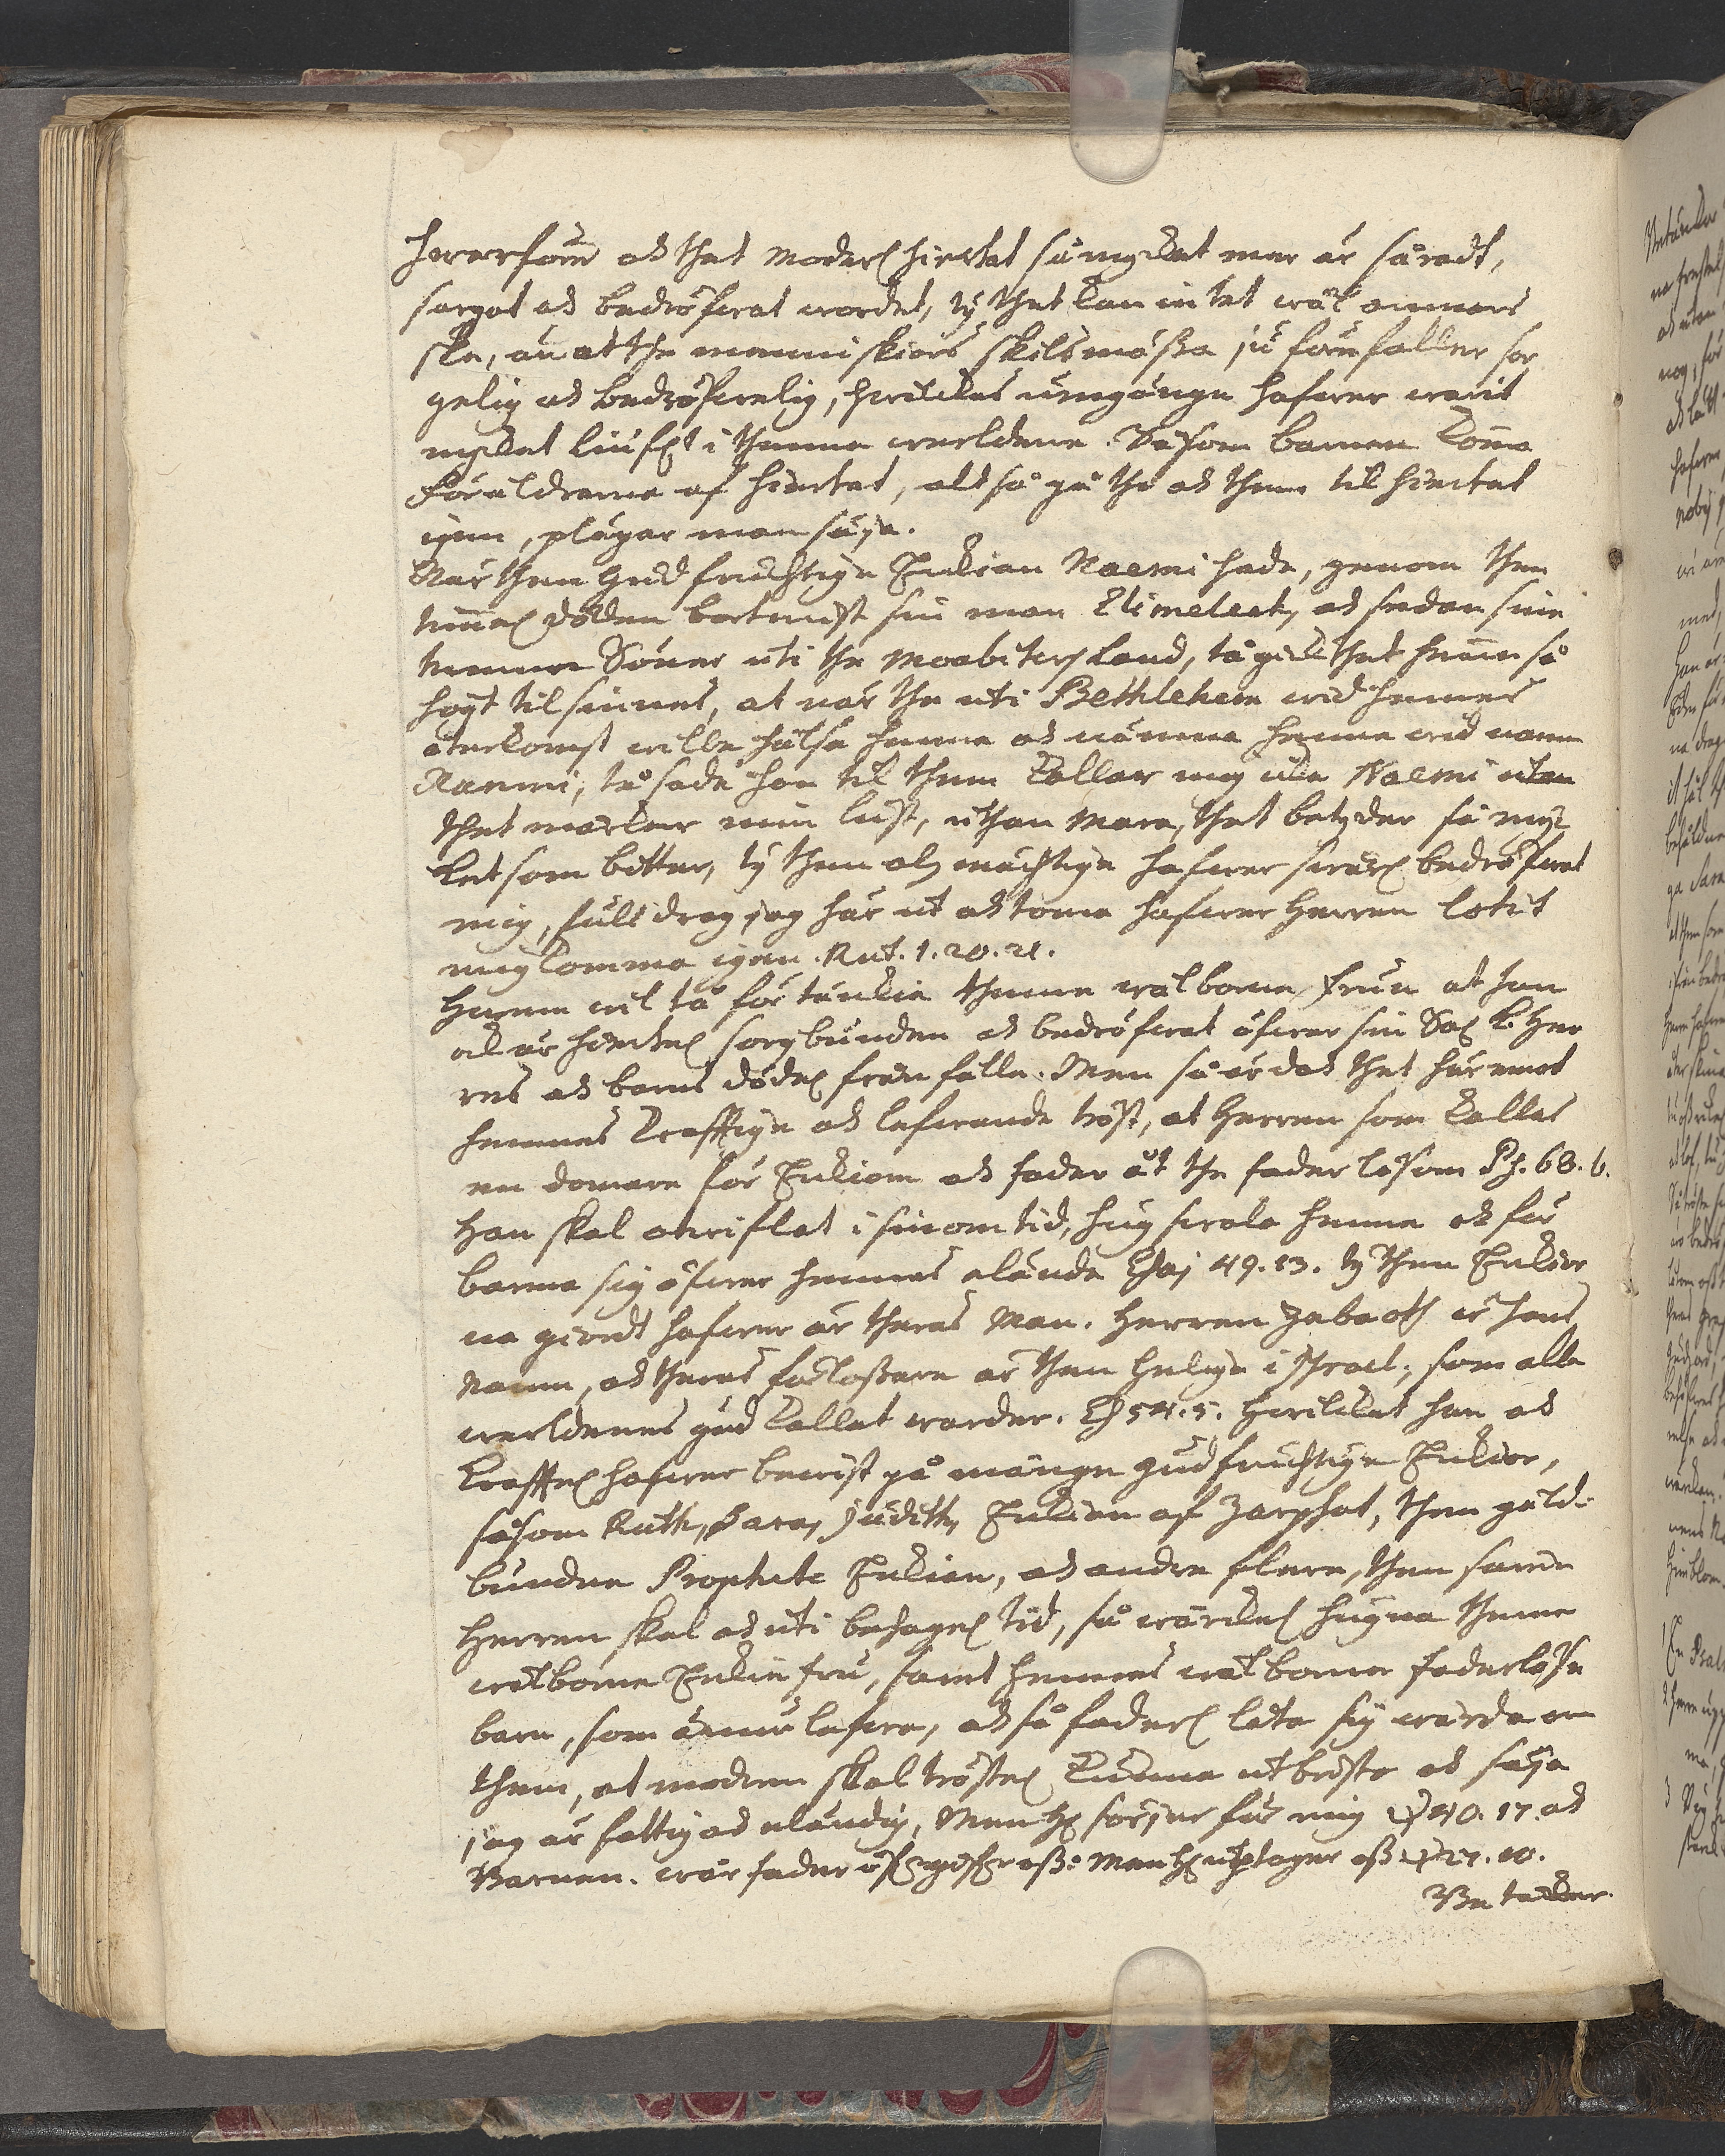 hwarföm ock thet Moderl. hiertat så mycket mer är såradt,
sorgat ock bedröfwat wordet, ty thet kan intet wäl annars
ske, än at the menniskiors skilsmässa jú förefaller sor
gelig ock bedröfwelig, hwilckas ümgänge hafwer warit
mycket liúfl.t i thenne werldene. Såsom barnen kom̄a
Föräldrarna af hiertat, altså gå the ock them til hiertat
igen, plägar man säija.
När then Gudfruchtiga Enkian Naemi hade, genom then
tim̄el. döden bortmist sin man Elimelech, ock sedan sine
twenne Söner uti the Moabiters Land, tå gick thet henne så
högt til sinnes, at när the uti Bethlehem wid hennes
återkomst wille hälsa henne ock nämna henne wid namn
Naemi; tå sade hon til them kaller mig icke Naemi utan
thet märker min lust, uthan Mara, thet betyder så myc
ket som bitter, ty then alzmächtige hafwer swårl. bedröfwat
mig, full drog jag här ut ock toma hafwer Herren låtit
mig komma igen. Rut. 1. 20. 21.
Hwem wil tå förtänckia thenne wälborne Frun at hon
ock är hiertel. sorgbunden ock bedröfwat öfwer sin Sal. k. Her
res ock barns dödel. frånfälle. Men så är dock thet häremot
hennes kraftige ock lefwande tröst, at Herren som kallas
en domare för Enkiom ock fader åt the faderlösom Ps. 68. 6.
Han skal otwiflat i sinom tid, hugswala henne ock för
barma sig öfwer hennes elände Esaj 49. 13. ty then Enkior
na giordt hafwer är theras Man. Herren Zebaoth är hans
Namn, ock theras förlossare är then helige i Israel; som alla
werldenes gud kallat warder. Es 54. 5. Hwilcket han ock
kraftel. hafwer bewist på månge gudfruchtige Enkior,
såsom Ruth, Sara, Judith, Enkian af Zarphat, then gäld-
bundne Prophete Enkian, ock andra flere, then samme
Herren skal ock uti behagel. tid, så wärckel. hugna thenne
wälborne Enkie frú, samt hennes wälborne faderlöse
barn, som ännú lefwa, ock så faderl. låta sig wårda om
them, at modren skal tröstel. kunna utbrista ock säija
jag är fattig ock eländig, Men H. sörjer för mig ψ 40. 17. ock
Barnen. wår fader öfwergifwer oss: Men H. uptager oss ψ 27. 10.
Betacker.